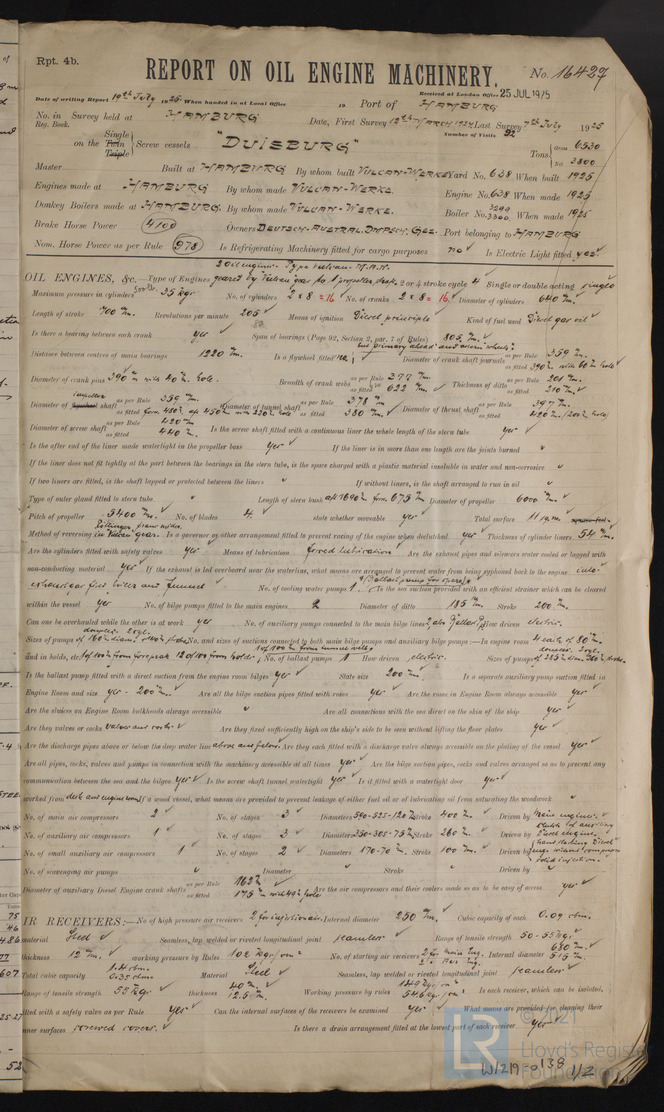 Rpt. 4b.
REPORT ON OIL ENGINE MACHINERY.
No. 16427
Received at London Office 25 JUL 1925
Date of writing Report 19th July 1925 When handed in at Local Office 19 Port of HAMBURG
No. in Survey held at HAMBURG Date, First Survey 12th MARCH 1924 Last Survey 7th July 1925
Reg. Book. Number of Visits 92
on the Single Twin Triple Screw vessels "DUISBURG" Tons Gross 6530 Net 3800
Master Built at HAMBURG By whom built VULCAN-WERKE Yard No. 638 When built 1925
Engines made at HAMBURG By whom made VULCAN-WERKE. Engine No. 638 When made 1925
Donkey Boilers made at HAMBURG. By whom made VULCAN-WERKE. Boiler No. 3299 3300 When made 1925
Brake Horse Power 4100 Owners DEUTSCH-AUSTRAL. DMPSCH. GES. Port belonging to HAMBURG
Nom. Horse Power as per Rule 978 Is Refrigerating Machinery fitted for cargo purposes no Is Electric Light fitted yes
OIL ENGINES, &c.—Type of Engines 2 oil engines geared by Vulcan gear to 1 propeller shaft 2 or 4 stroke cycle 4 Single or double acting single
Maximum pressure in cylinders 35 kgr No. of cylinders 2 x 8 = 16 No. of cranks 2 x 8 = 16 Diameter of cylinders 640 m/m.
Length of stroke 700 m/m. Revolutions per minute 205 Means of ignition Diesel principle Kind of fuel used Diesel gas oil
Is there a bearing between each crank yes Span of bearings (Page 92, Section 2, par. 7 of Rules) 805 m/m.
Distance between centres of main bearings 1220 m/m. Is a flywheel fitted Diameter of crank shaft journals as per Rule 359 m/m. as fitted 390 m/m with 60 m/m hole
Diameter of crank pins 390 m/m with 40 m/m hole. Breadth of crank webs as per Rule 277 m/m. as fitted 622 m/m. Thickness of ditto as per Rule 201 m/m. as fitted 210 m/m.
Diameter of shaft as per Rule 359 m/m. Diameter of tunnel shaft as per Rule 378 m/m. as fitted 380 m/m. Diameter of thrust shaft as per Rule 397 m/m. as fitted 420 m/m (200 m/m hole)
Diameter of screw shaft as per Rule 420 m/m as fitted 440 m/m. Is the screw shaft fitted with a continuous liner the whole length of the stern tube yes
Is the after end of the liner made watertight in the propeller boss yes If the liner is in more than one length are the joints burned
If the liner does not fit tightly at the part between the bearings in the stern tube, is the space charged with a plastic material insoluble in water and non-corrosive
If two liners are fitted, is the shaft lapped or protected between the liners If without liners, is the shaft arranged to run in oil
Type of outer gland fitted to stern tube Length of stern bush aft 1690 m/m forw. 675 m/m Diameter of propeller 6000 m/m.
Pitch of propeller 5400 m/m. No. of blades 4. state whether moveable yes Total surface 11 sq. m.
Method of reversing Vulcan gear. Is a governor or other arrangement fitted to prevent racing of the engine when declutched yes Thickness of cylinder liners 54 m/m.
Are the cylinders fitted with safety valves yes Means of lubrication forced lubrication Are the exhaust pipes and silencers water cooled or lagged with
non-conducting material yes If the exhaust is led overboard near the waterline, what means are arranged to prevent water from being syphoned back to the engine into
exhaust gas fired boiler and funnel No. of cooling water pumps 1 Is the sea suction provided with an efficient strainer which can be cleared
within the vessel yes No. of bilge pumps fitted to the main engines 2 Diameter of ditto 185 m/m. Stroke 200 m/m.
Can one be overhauled while the other is at work yes No. of auxiliary pumps connected to the main bilge lines How driven electric.
Sizes of pumps No. and sizes of suctions connected to both main bilge pumps and auxiliary bilge pumps:—In engine room 4 each of 80 m/m.
and in holds, etc. No. of ballast pumps 1 How driven electric. Sizes of pumps
Is the ballast pump fitted with a direct suction from the engine room bilges yes State size 200 m/m. Is a separate auxiliary pump suction fitted in
Engine Room and size yes - 200 m/m. Are all the bilge suction pipes fitted with roses yes Are the roses in Engine Room always accessible yes
Are the sluices on Engine Room bulkheads always accessible Are all connections with the sea direct on the skin of the ship yes
Are they valves or cocks valves and cocks Are they fixed sufficiently high on the ship's side to be seen without lifting the floor plates yes
Are the discharge pipes above or below the deep water line above and below Are they each fitted with a discharge valve always accessible on the plating of the vessel yes
Are all pipes, cocks, valves and pumps in connection with the machinery accessible at all times yes Are the bilge suction pipes, cocks and valves arranged so as to prevent any
communication between the sea and the bilges yes Is the screw shaft tunnel watertight yes Is it fitted with a watertight door yes
worked from deck and engine room If a wood vessel, what means are provided to prevent leakage of either fuel oil or of lubricating oil from saturating the woodwork
No. of main air compressors 2 No. of stages 3 Diameters 590-525-120 m/m Stroke 400 m/m. Driven by main engine.
No. of auxiliary air compressors 1 No. of stages 3 Diameters 350-305-75 m/m Stroke 260 m/m. Driven by Diesel engine.
No. of small auxiliary air compressors 1 No. of stages 2 Diameters 170-70 m/m. Stroke 100 m/m. Driven by
No. of scavenging air pumps Diameter Stroke Driven by
Diameter of auxiliary Diesel Engine crank shafts as per Rule 162 m/m as fitted 175 m/m Are the air compressors and their coolers made so as to be easy of access yes
IR RECEIVERS:—No. of high pressure air receivers 2 for injection air. Internal diameter 250 m/m. Cubic capacity of each 0.09 cbm.
material Steel Seamless, lap welded or riveted longitudinal joint seamless Range of tensile strength 50-55 kgr.
thickness 12 m/m. working pressure by Rules 102 kgr/cm² No. of starting air receivers Internal diameter
Total cubic capacity 1.4 cbm. 0.35 cbm. Material Steel Seamless, lap welded or riveted longitudinal joint seamless
Range of tensile strength 55 kgr. thickness 40 m/m 12.5 m/m. Working pressure by rules Is each receiver, which can be isolated,
fitted with a safety valve as per Rule yes Can the internal surfaces of the receivers be examined yes What means are provided for cleaning their
inner surfaces screwed covers. Is there a drain arrangement fitted at the lowest part of each receiver yes
© 2021
Lloyd's Register
Foundation
W1219-0138 1/2